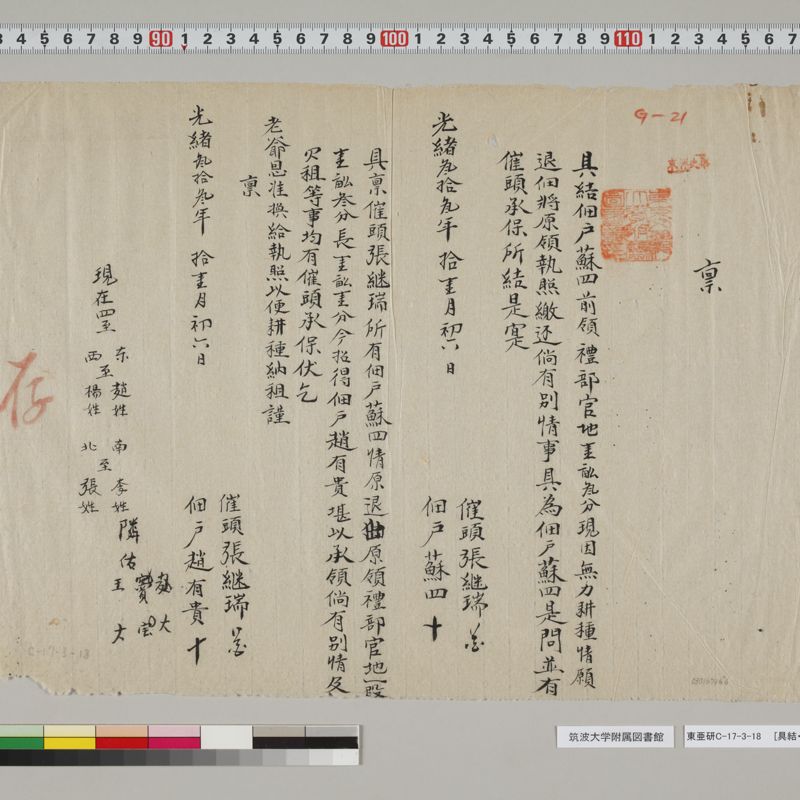 G-21
稟
具結佃戶蘇四前領禮部官地壹畝叁分現因無力耕種情願
退佃將原領執照繳还倘有別情事具為佃戶蘇四是問並有
催頭承保所結是寔
光緒叁拾叁年 拾壹月 初六日
催頭張継瑞
佃戶蘇四 十
具稟催頭張継瑞所有佃戶蘇四情原退 原領禮部官地一段
壹畝叄分長壹畝壹分今招得佃戶趙有貴堪以承領倘有別情及
欠租等事均有催頭承保伏乞
老爺恩准換給執照以便耕種納租謹
稟
光緒叁拾叁年 拾壹月 初六日
催頭張継瑞
佃戶趙有貴 十
現在四至
东至趙姓 南至李姓
西至楊姓 北至張姓
隣佑
王
存
C-17-3-18
筑波大学附属図書館
東亜研C-17-3-18 [具結・
3 4 5 6 7 8 9 90 1 2 3 4 5 6 7 8 9 100 1 2 3 4 5 6 7 8 9 110 1 2 3 4 5 6 7